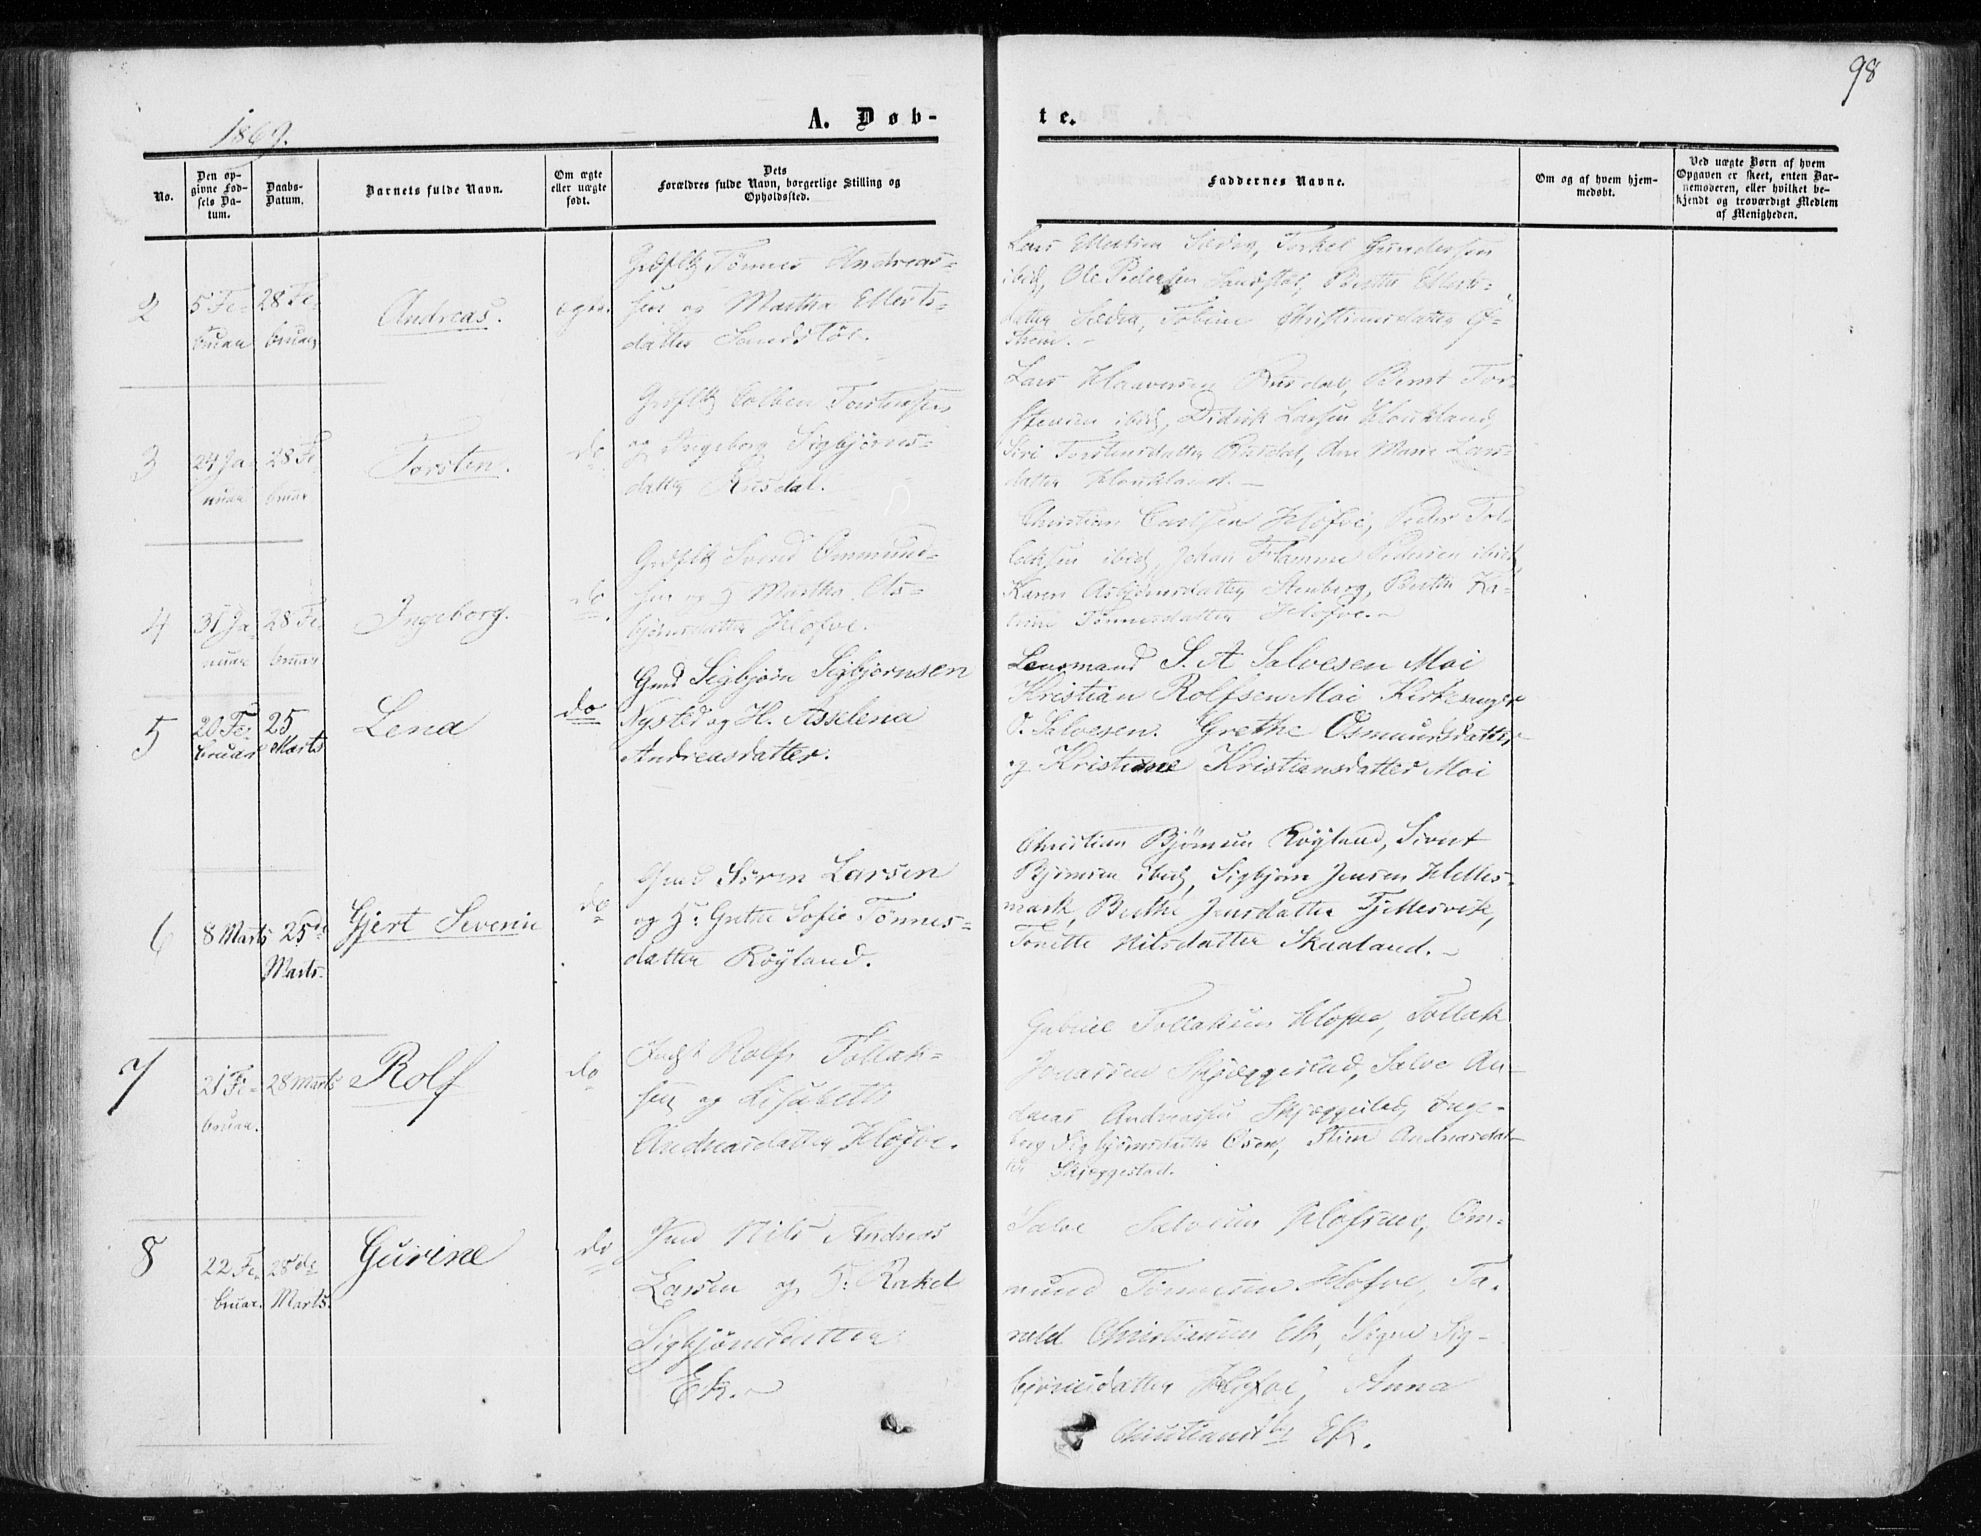 98
1869.
A. Døb-
te.
No.
Den op-
givne Fød-
sels Da-
tum.
Daabs-
Datum.
Barnets fulde Navn.
Om ægte
eller uægte
født.
Dets
Forældres fulde Navn, borgerlige Stilling og
Opholdssted.
Faddernes Navne.
Om og af hvem hjem-
medøbt.
Ved uægte Børn af hvem
Opgaven er skeet, enten Bar-
nemoderen, eller hvilket be-
kjendt og troværdigt Medlem
af Menigheden.
2
5 Fe-
bruar
28 Fe-
bruar
Andreas.
Tønnes Andreas-
sen og Martha Ellerts-
datter Sandstøl.
Lars Torkel Gundersen
ibid, Ole Pedersen Sandstøl, Berthe Ellerts-
datter Tobine Christiansdatter
3
24 Ja-
nuar
28 Fe-
bruar
Torsten.
do
Torstensen
og Ingeborg Sigbjørns-
datter Rusdal.
Lars Haaversen Rusdal, Bernt Tor-
stensen ibid, Didrik Larsen Haukland,
Siri Torstensdatter Rusdal, Ane Marie Lars-
datter Haukland.
4
31 Ja-
nuar
28 Fe-
bruar
Ingeborg.
do
Svend Ommund-
sen og Martha As-
bjørnsdatter Hofve.
Christian Carlsen Hofve, Peder Tol-
laksen ibid, Johan Flamme Pedersen ibid,
Karen Asbjørnsdatter Stenberg, Berthe Ka-
trine Tønnesdatter Hofve.
5
20 Fe-
bruar
25
Marts
Lena
do
Gmd Sigbjørn Sigbjørnsen
Nysted og H. Asselena
Andreasdatter.
Lensmand S. A Salvesen Moi
Kristian Rolfsen Moi Kirkesanger
O. Salvesen. Grethe Osmundsdatter
og Kristine Kristiansdatter Moi
6
8 Marts
25de
Marts.
Gjert Severin
do
Gmd Søren Larsen
og H: Grethe Sofie Tønnes-
datter Röyland.
Christian Bjørnsen Röyland, Sivert
Bjørnsen ibid, Sigbjørn Jensen Helles-
mark, Berthe Jensdatter Fjellesvik,
Tonette Nilsdatter Skaaland.
7
21 Fe-
bruar.
28 Marts
Rolf
do
Rolf Tollak-
sen og Lisabeth
Andreasdatter Hofve.
Gabriel Tollaksen Hofve, Tollak
Jonassen Skjæggestad, Salve An-
dreas Andreassen Skjæggestad, Inge-
borg Sigbjørnsdatter Osen, Stine Andreasdat-
ter Skjæggestad.
8
22 Fe-
bruar.
28de
Marts.
Gurine
do
Gmd Nils Andreas
Larsen og H: Rakel
Sigbjørnsdatter
Ek.
Salve Salvesen Hofsmo, Om-
mund Tønnesen Hofve, Ta-
rald Christiansen Ek, Signe Sig-
bjørnsdatter Hofve, Anna
Christiansdtr Ek.